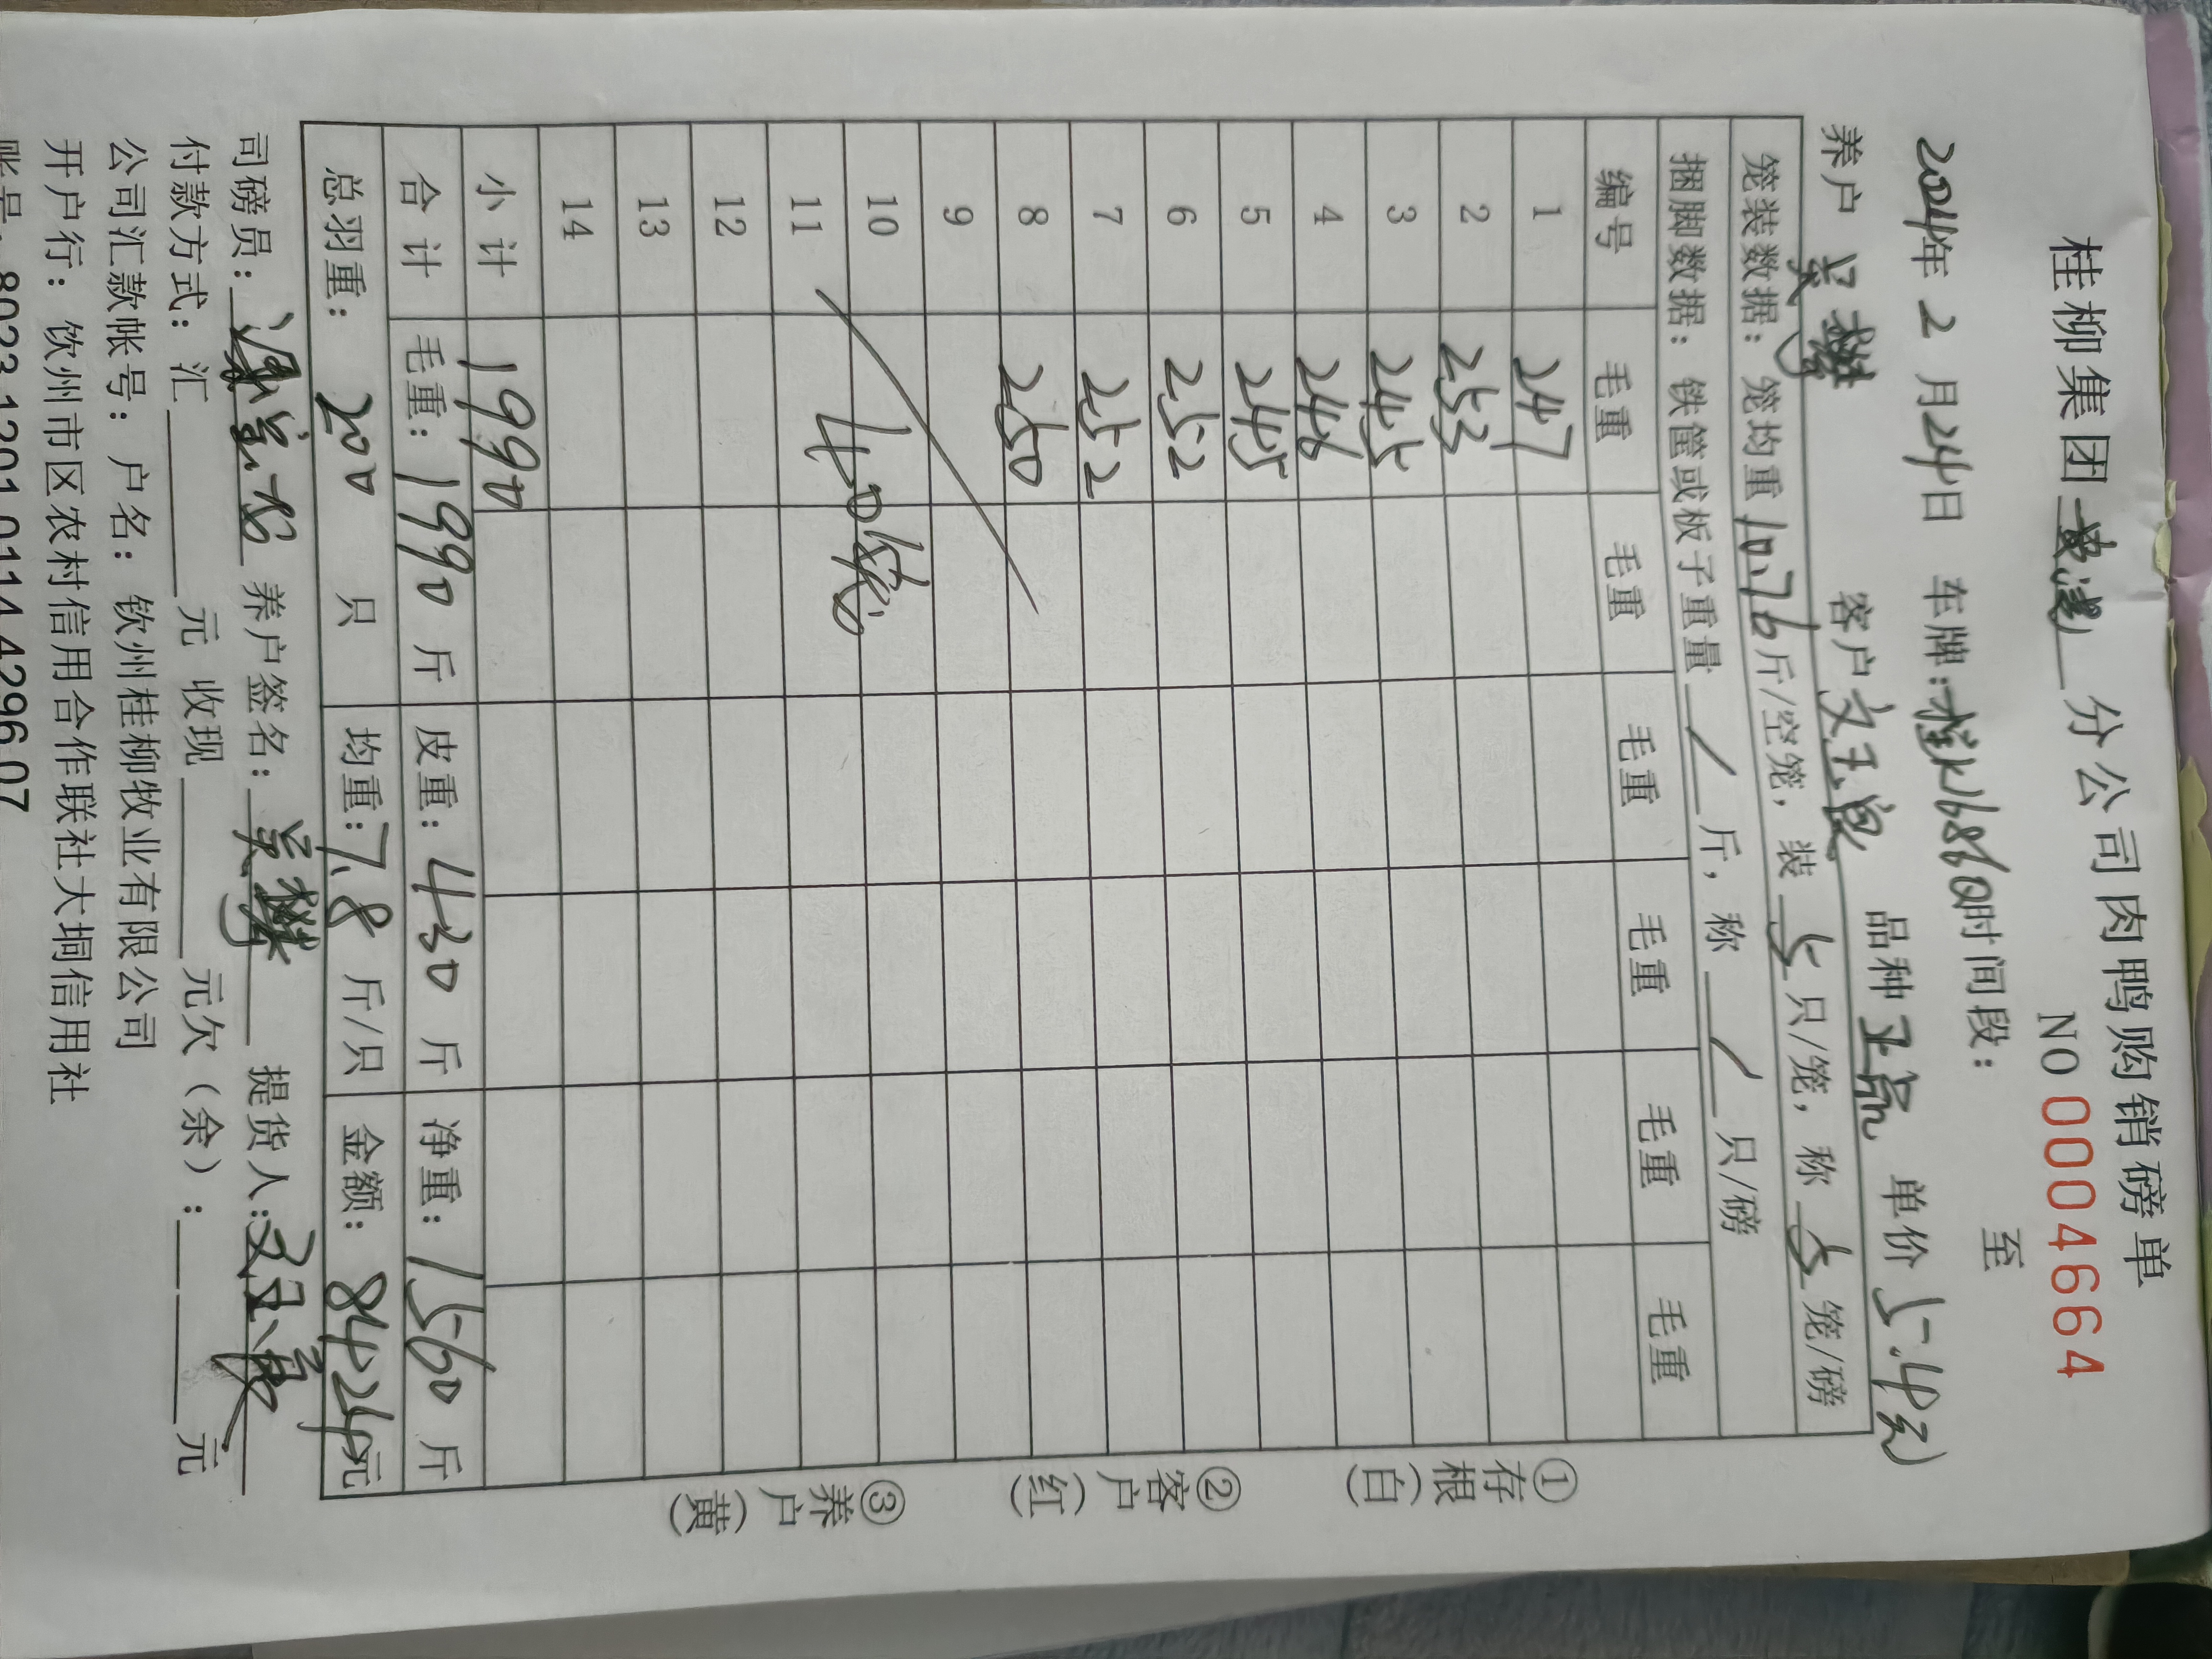 桂柳集团 分公司肉鸭购销磅单
NO 0004664
2024年 2 月 24日 车牌: 时间段: 至
养户 吴 客户 文玉良 品种 单价 5.4元
笼装数据: 笼均重 10.76 斤/空笼, 装 5 只/笼, 称 5 笼/磅
捆脚数据: 铁筐或板子重量 / 斤, 称 / 只/磅
编号 毛重 毛重 毛重 毛重 毛重 毛重
1 247
2 253
3 245
4 246
5 245
6 252
7 252
8 250
9
10 40笼
11
12
13
14
小计 1990
合计 毛重: 1990 斤 皮重: 430 斤 净重: 1560 斤
总羽重: 200 只 均重: 7.8 斤/只 金额: 8424元
司磅员: 养户签名: 吴 提货人:
付款方式: 汇 元 收现 元欠(余): 元
公司汇款帐号: 户名: 钦州桂柳牧业有限公司
开户行: 钦州市区农村信用合作联社大垌信用社
账号: 8023 1201 0114 4296 07
①存根(白) ②客户(红) ③养户(黄)